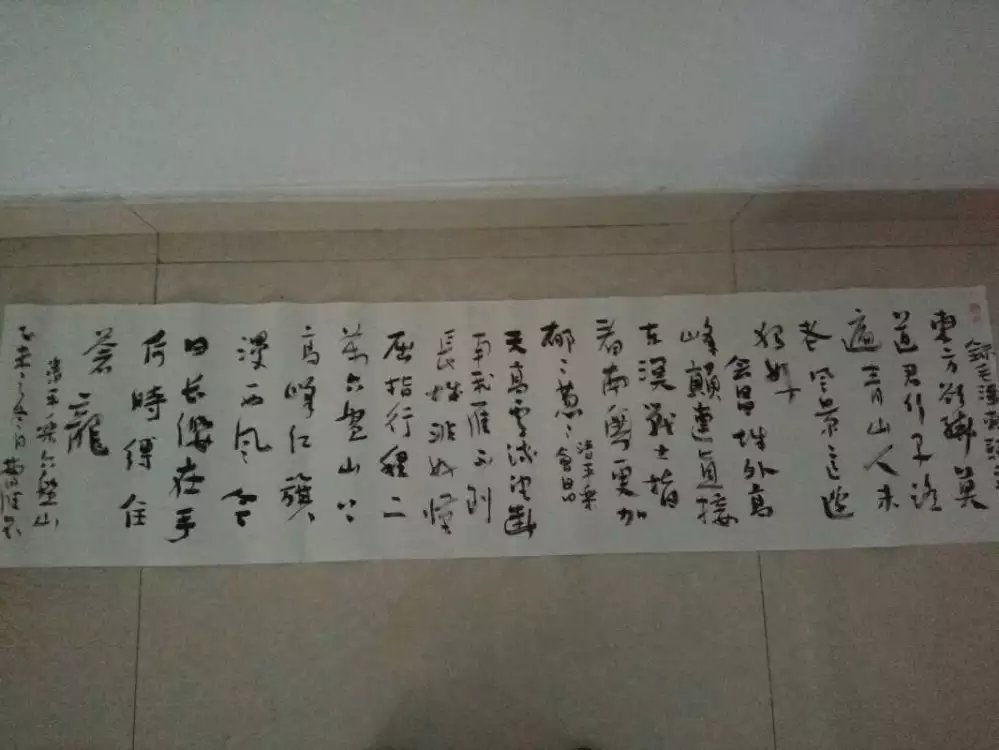 錄毛澤東詞
東方欲曉莫
道君行早踏
遍青山人未
老風景這邊
獨好
會昌城外高
峰顛連直接
東溟戰士指
看南粵更加
郁〻葱〻
清平樂
會昌
天高雲淡望斷
南飛雁不到
長城非好漢
屈指行程二
萬六盤山上
高峰紅旗
漫西風今
日長纓在手
何時縛住
蒼龍
清平樂六盤山
乙未之冬月